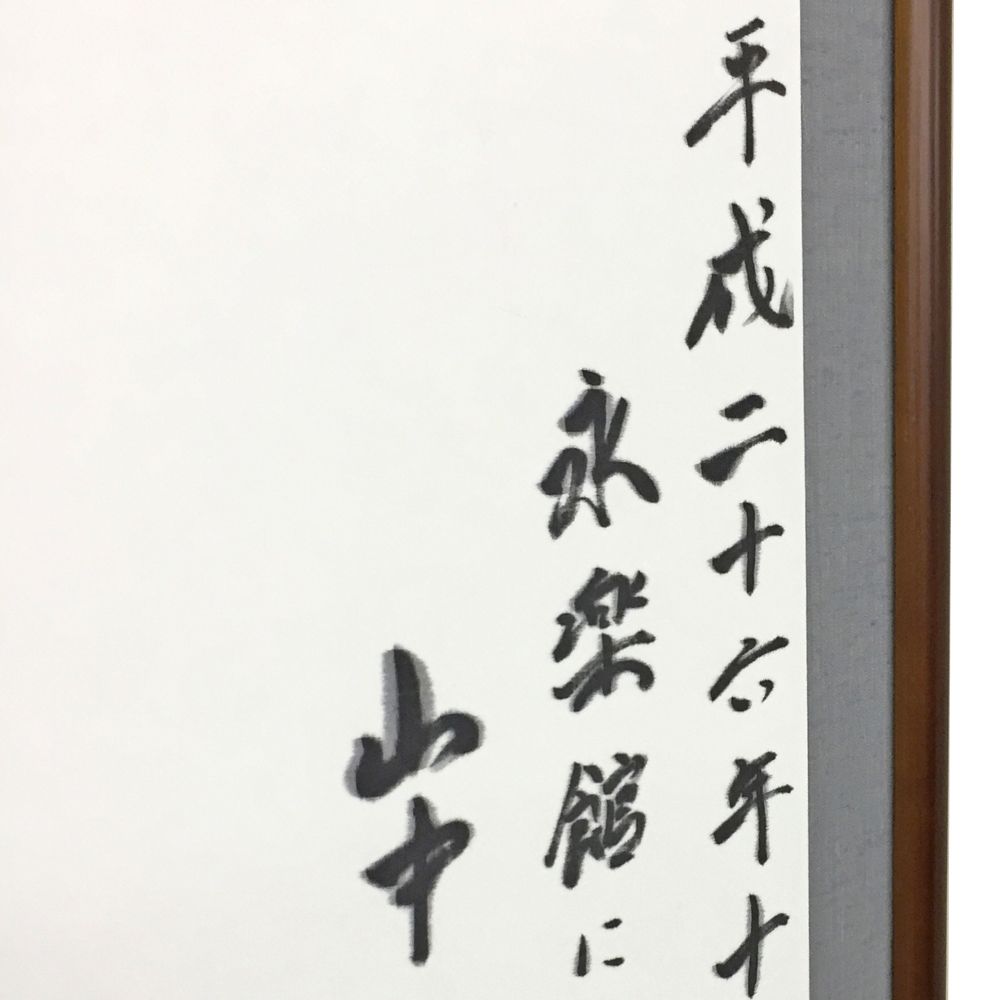 平成二十六年十
永楽館に
山中